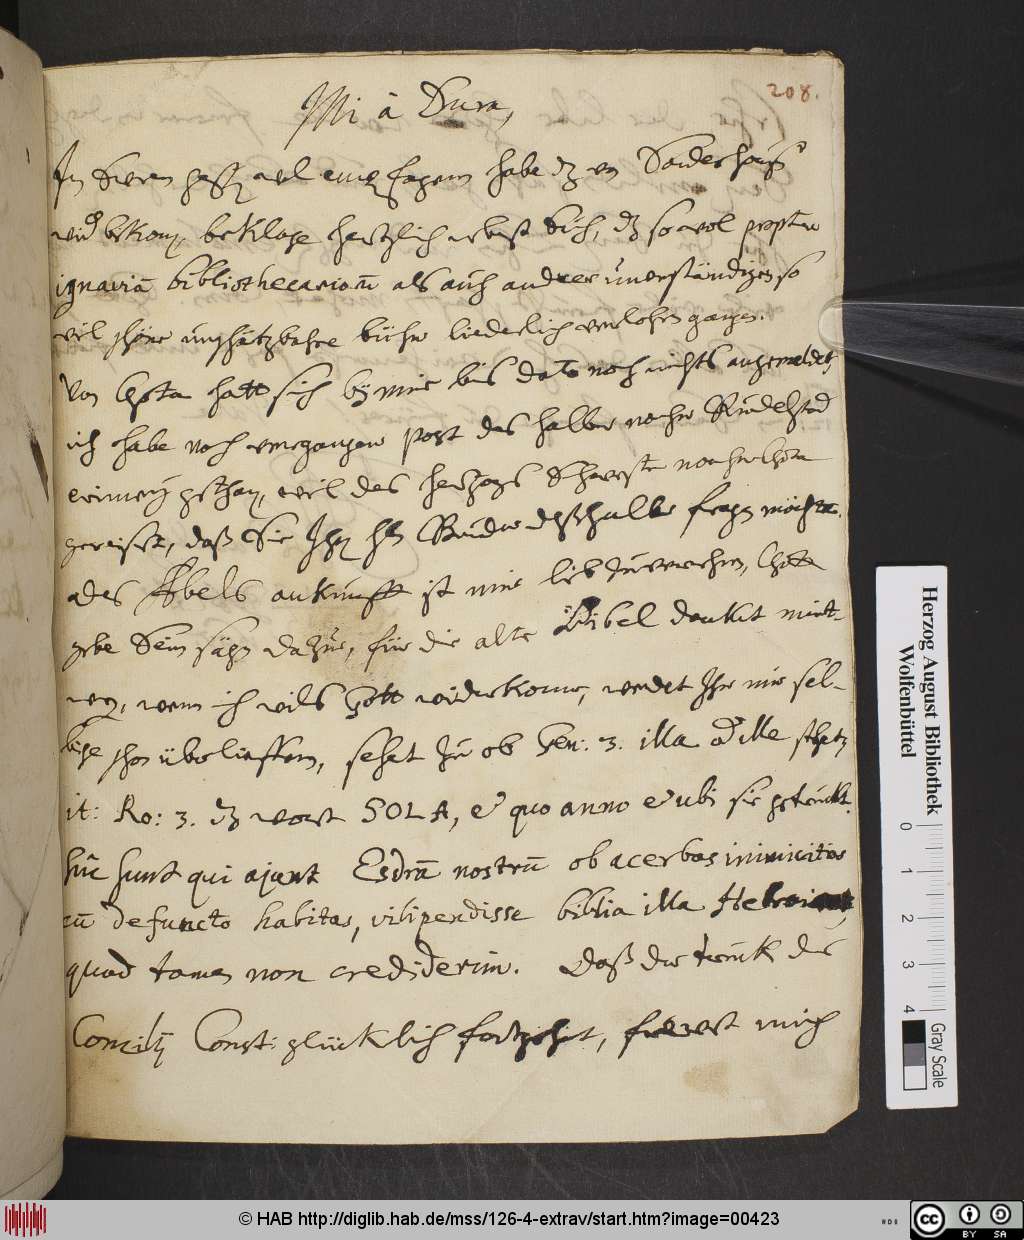 208.
Mi à Dura,
habe dz von Sonderhauß
beklage hertzlich selbst Euch, dz so wol propter
ignaviā bibliothecariorū als auch andrer unverständigen so
viel schöne unschätzbahre bücher liederlich verlohren gangen.
Von hatt sich by mir bis dato noch nichts angemeldet,
ich habe noch vergangene post deshalber nacher Rudelstad
gethan, weil des Hertzogs Schwester nacher
gereisst, daß Sie Ihren Bruder deßhalber fragen möchte.
des Abels ankunfft ist mir lieb zuvernehmen, Gott
gebe Sein sägen dazue, für die alte Bibel danket meinet-
wegen, wenn ich wils Gott widerkome, werdet Ihr mir sel-
bige schon überlieffern, sehet zu ob Gen: 3. illa od ille stehet,
it: Ro: 3. dz wort SOLA, et quo anno et ubi sie getruckt.
hīc sunt qui ajunt Esdrā nostrū ob acerbas inimicitias
cū defuncto habitas, vilipendisse biblia illa
quod tamen non crediderim. Daß der truck des
Concilij Const: glücklich fortgehet, frewet mich
Herzog August Bibliothek
Wolfenbüttel
0 1 2 3 4
Gray Scale
© HAB http://diglib.hab.de/mss/126-4-extrav/start.htm?image=00423
cc BY SA